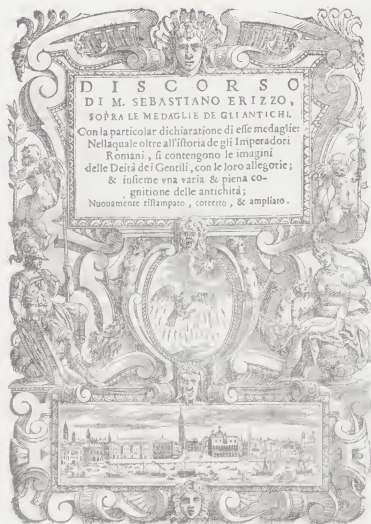 DISCORSO
DI M. SEBASTIANO ERIZZO,
SOPRA LE MEDAGLIE DE GLI ANTICHI.
Con la particolar dichiaratione di esse medaglie:
Nellaquale oltre all'istoria de gli Imperadori
Romani, si contengono le imagini
delle Deità de i Gentili, con le loro allegorie;
& insieme vna varia & piena co-
gnitione delle antichità;
Nuouamente ristampato, corretto, & ampliato.